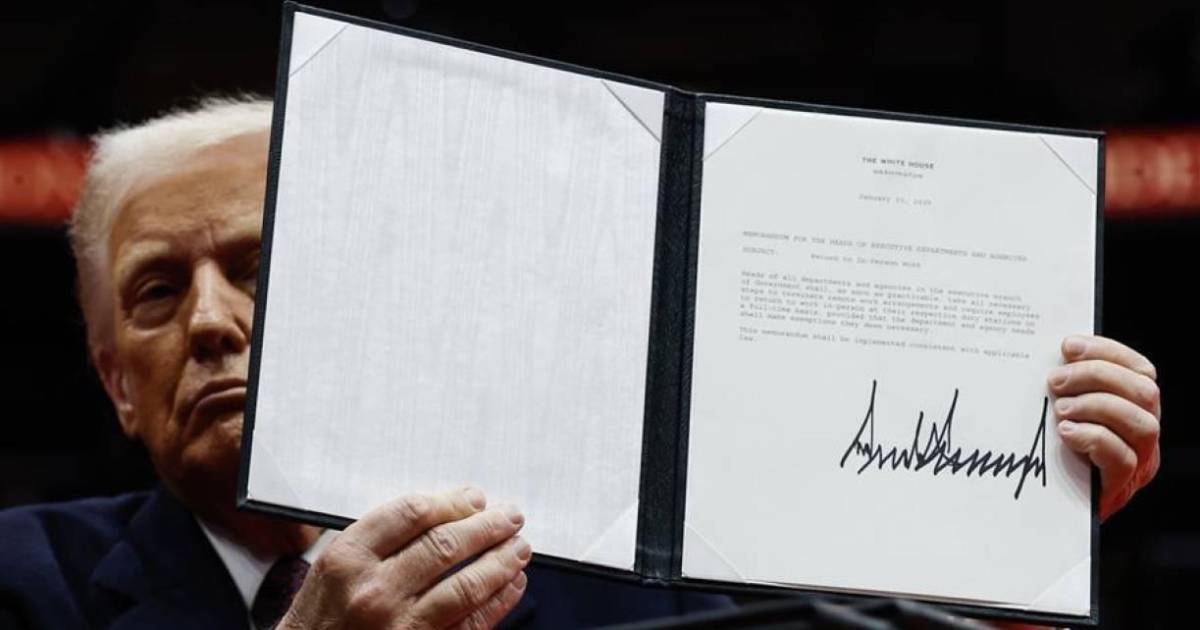 THE WHITE HOUSE
WASHINGTON
January 20, 2025
MEMORANDUM FOR THE HEADS OF EXECUTIVE DEPARTMENTS AND AGENCIES
SUBJECT: Return to In-Person Work
Heads of all departments and agencies in the executive branch
of Government shall, as soon as practicable, take all necessary
steps to terminate remote work arrangements and require employees
to return to work in-person at their respective duty stations on
a full-time basis, provided that the department and agency heads
shall make exemptions they deem necessary.
This memorandum shall be implemented consistent with applicable
law.